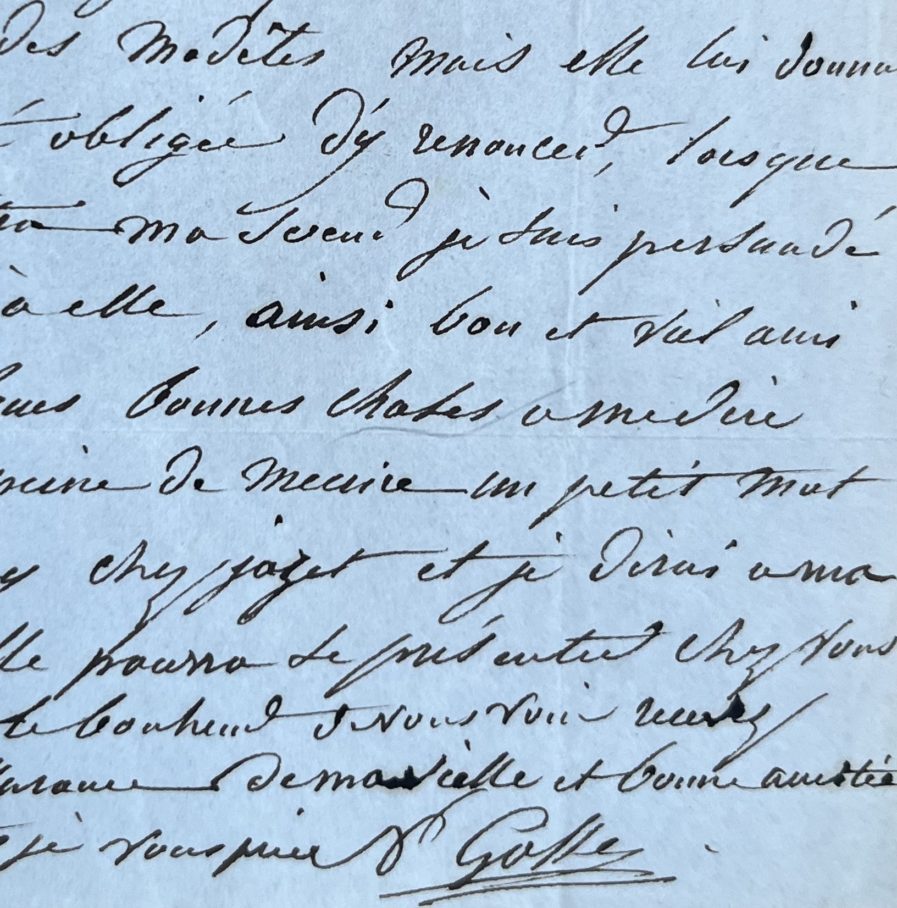 des modêles mais elle lui donna
é obligée d'y renoncer, lorsque
ma soeur je suis persuadé
à elle, ainsi bon et viel ami
bonnes choses a me dire
peine de mecrire un petit mot
chez jazet et je dirai a ma
lle pourra se présenter chez vous
le bonheur de vous voir recevez
de ma vielle et bonne amitiée
je vous prie Vr Gosse